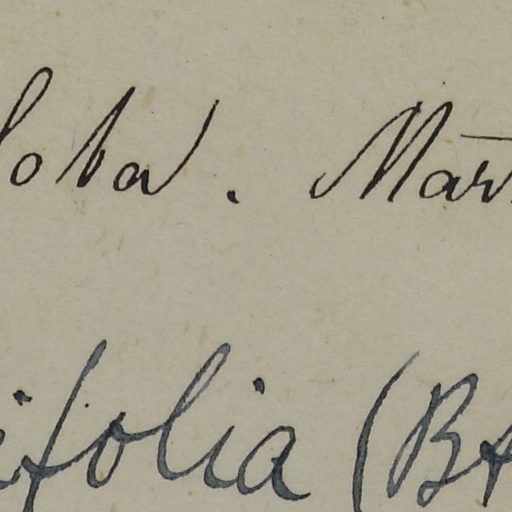 loba. Mar
ifolia (B